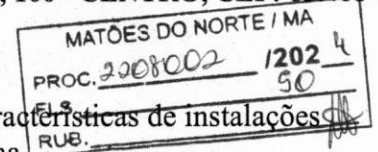 MATÕES DO NORTE / MA
PROC. 2208002 /2024
FLS. 50
RUB.
características de instalações